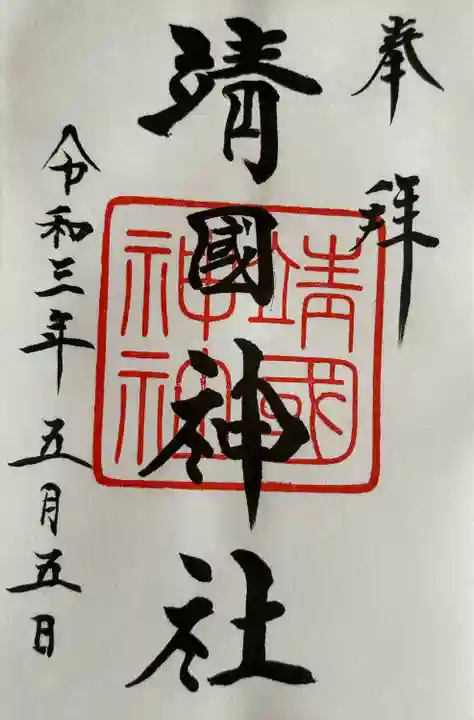 奉拝
靖國神社
靖國
神社
令和三年五月五日